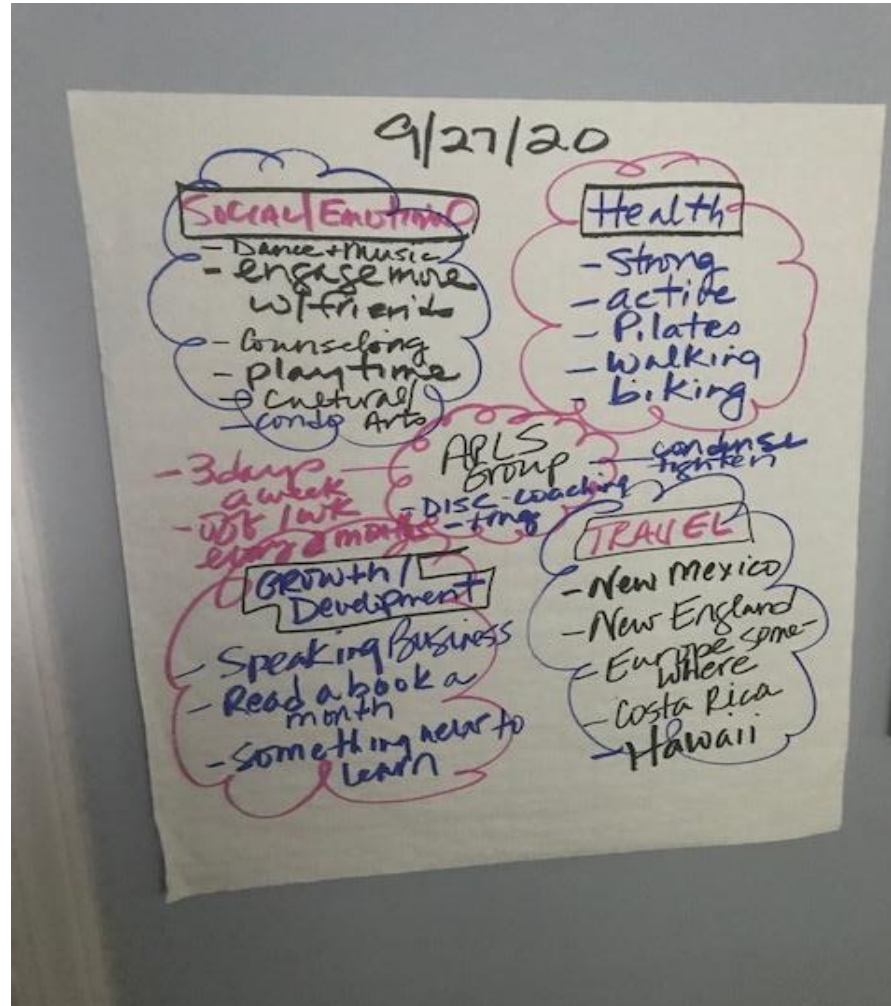 9/27/20
Social/Emotional
- Dance + Music
- engage more
w/friends
- Counseling
- playtime
- Cultural/
Arts
- condo
Health
- Strong
- active
- Pilates
- walking
- biking
APLS
Group
- DISC-coaching
- trng
- condense
tighten
- 3 days
a week
- wk
every 2 months
Growth/
Development
- Speaking Business
- Read a book a
month
- Something new to
learn
TRAVEL
- New Mexico
- New England
- Europe some-
where
- Costa Rica
- Hawaii